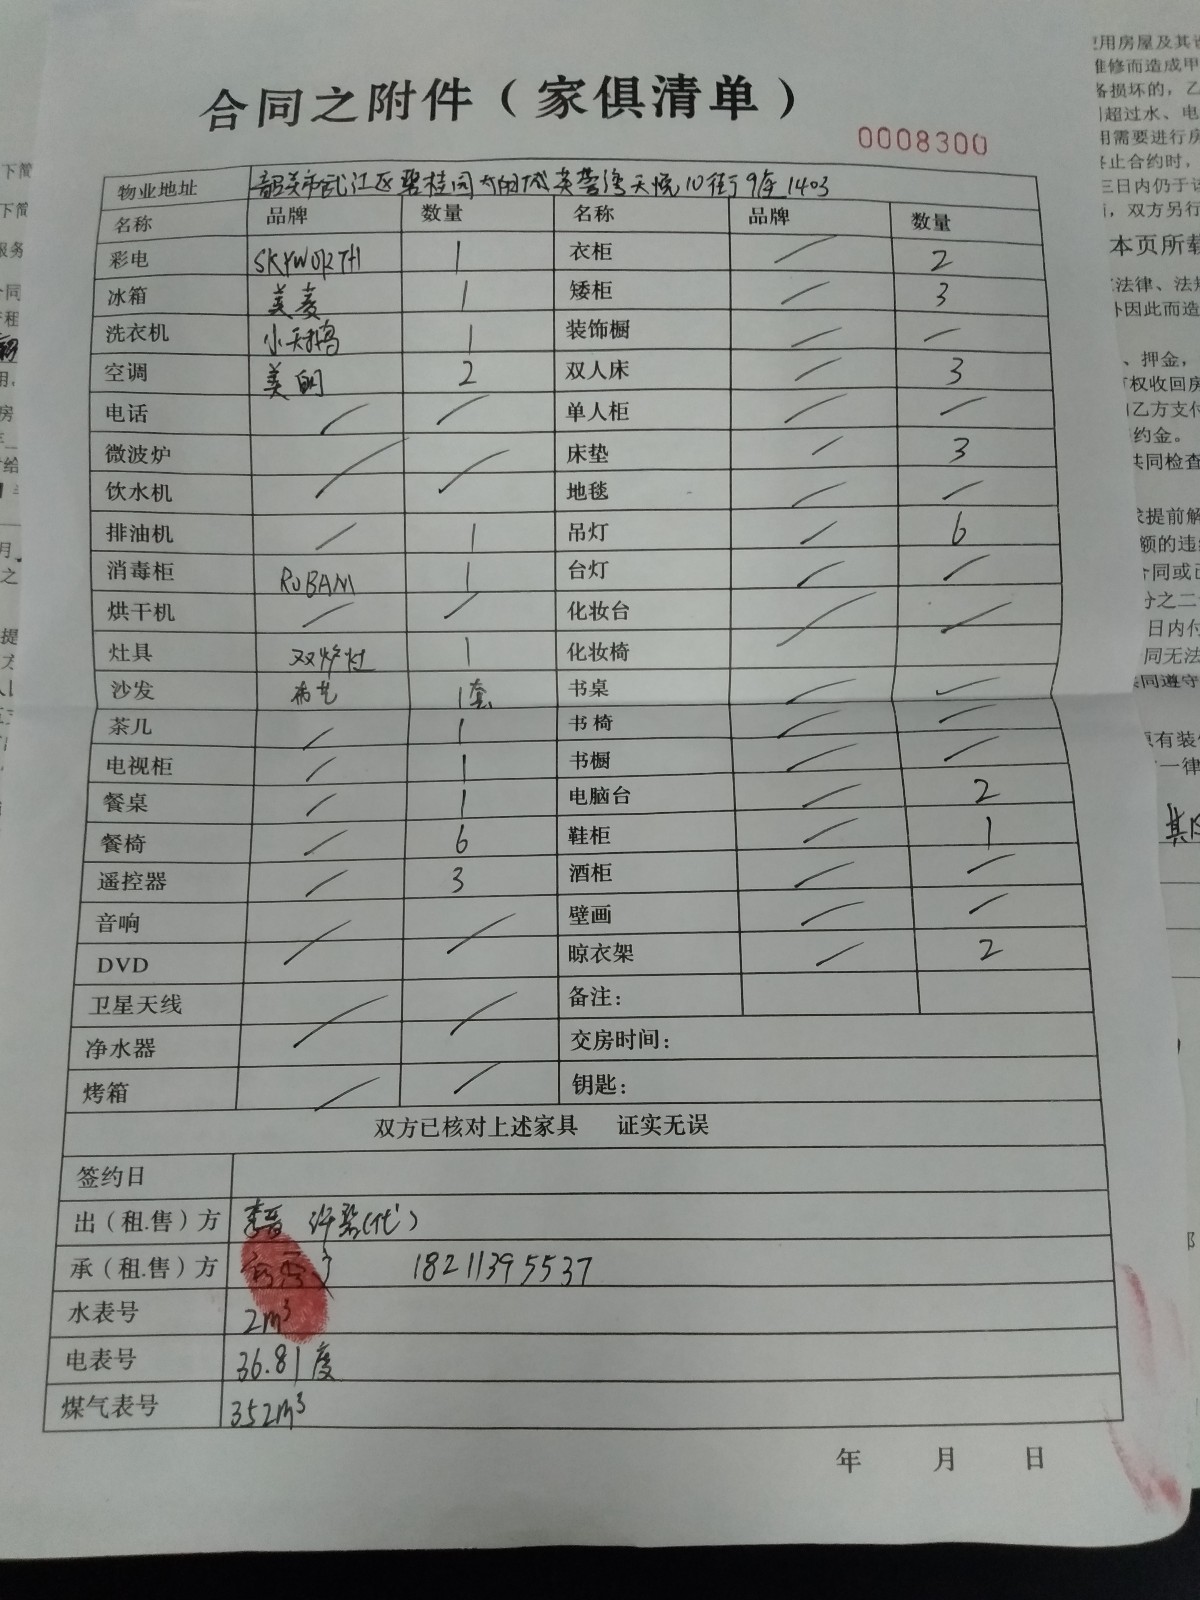 合同之附件（家俱清单）
0008300
物业地址 韶关市武江区碧桂园太阳城芙蓉湾天悦10街9座1403
名称 品牌 数量 名称 品牌 数量
彩电 SKYWORTH 1 衣柜 / 2
冰箱 美菱 1 矮柜 / 3
洗衣机 小天鹅 1 装饰橱 / /
空调 美的 2 双人床 / 3
电话 / / 单人柜 / /
微波炉 / / 床垫 / 3
饮水机 地毯 / /
排油机 / 1 吊灯 / 6
消毒柜 ROBAM 1 台灯 / /
烘干机 / / 化妆台 / /
灶具 双炉灶 1 化妆椅
沙发 布艺 1套 书桌 / /
茶几 / 1 书椅 / /
电视柜 / 1 书橱 / /
餐桌 / 1 电脑台 / 2
餐椅 / 6 鞋柜 / 1
遥控器 / 3 酒柜 / /
音响 / / 壁画 / /
DVD 晾衣架 / 2
卫星天线 / / 备注：
净水器 交房时间：
烤箱 / / 钥匙：
双方已核对上述家具 证实无误
签约日
出（租.售）方 (代)
承（租.售）方 18211395537
水表号 2m³
电表号 36.81度
煤气表号 352m³
年 月 日